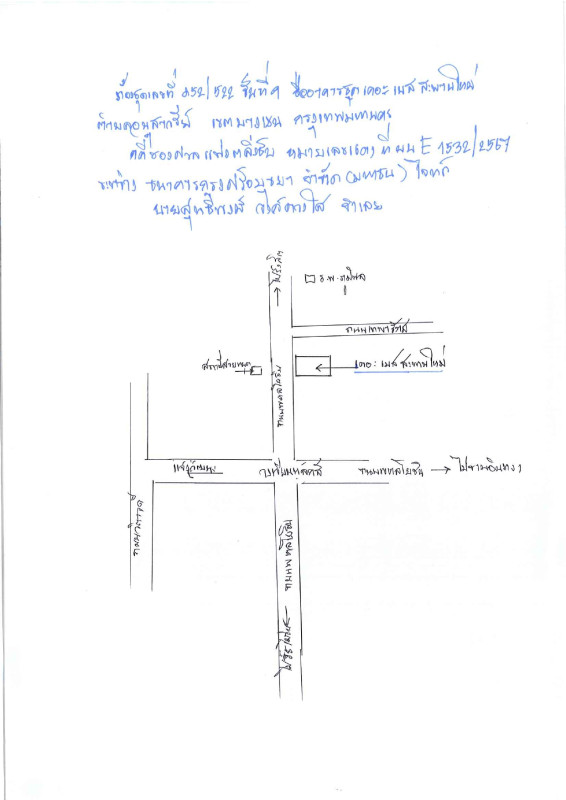 ห้องชุดเลขที่ 252/522 ชั้นที่ 9 ชื่ออาคารชุด เดอะ เมส สะพานใหม่
เขตบางเขน กรุงเทพมหานคร
คดีของศาลแพ่งตลิ่งชัน หมายเลขแดงที่ ผบ E 1532/2567
ระหว่าง ธนาคารกรุงศรีอยุธยา จำกัด (มหาชน) โจทก์
นายสุทธิพงษ์ จำเลย
ไปรังสิต
ร.พ.ภูมิพล
ถนนเทพารักษ์
สถานีสายหยุด
เดอะ เมส สะพานใหม่
ถนนพหลโยธิน
แจ้งวัฒนะ
ถนนพหลโยธิน
ไปรามอินทรา
ถนนวิภาวดี
ถนนพหลโยธิน